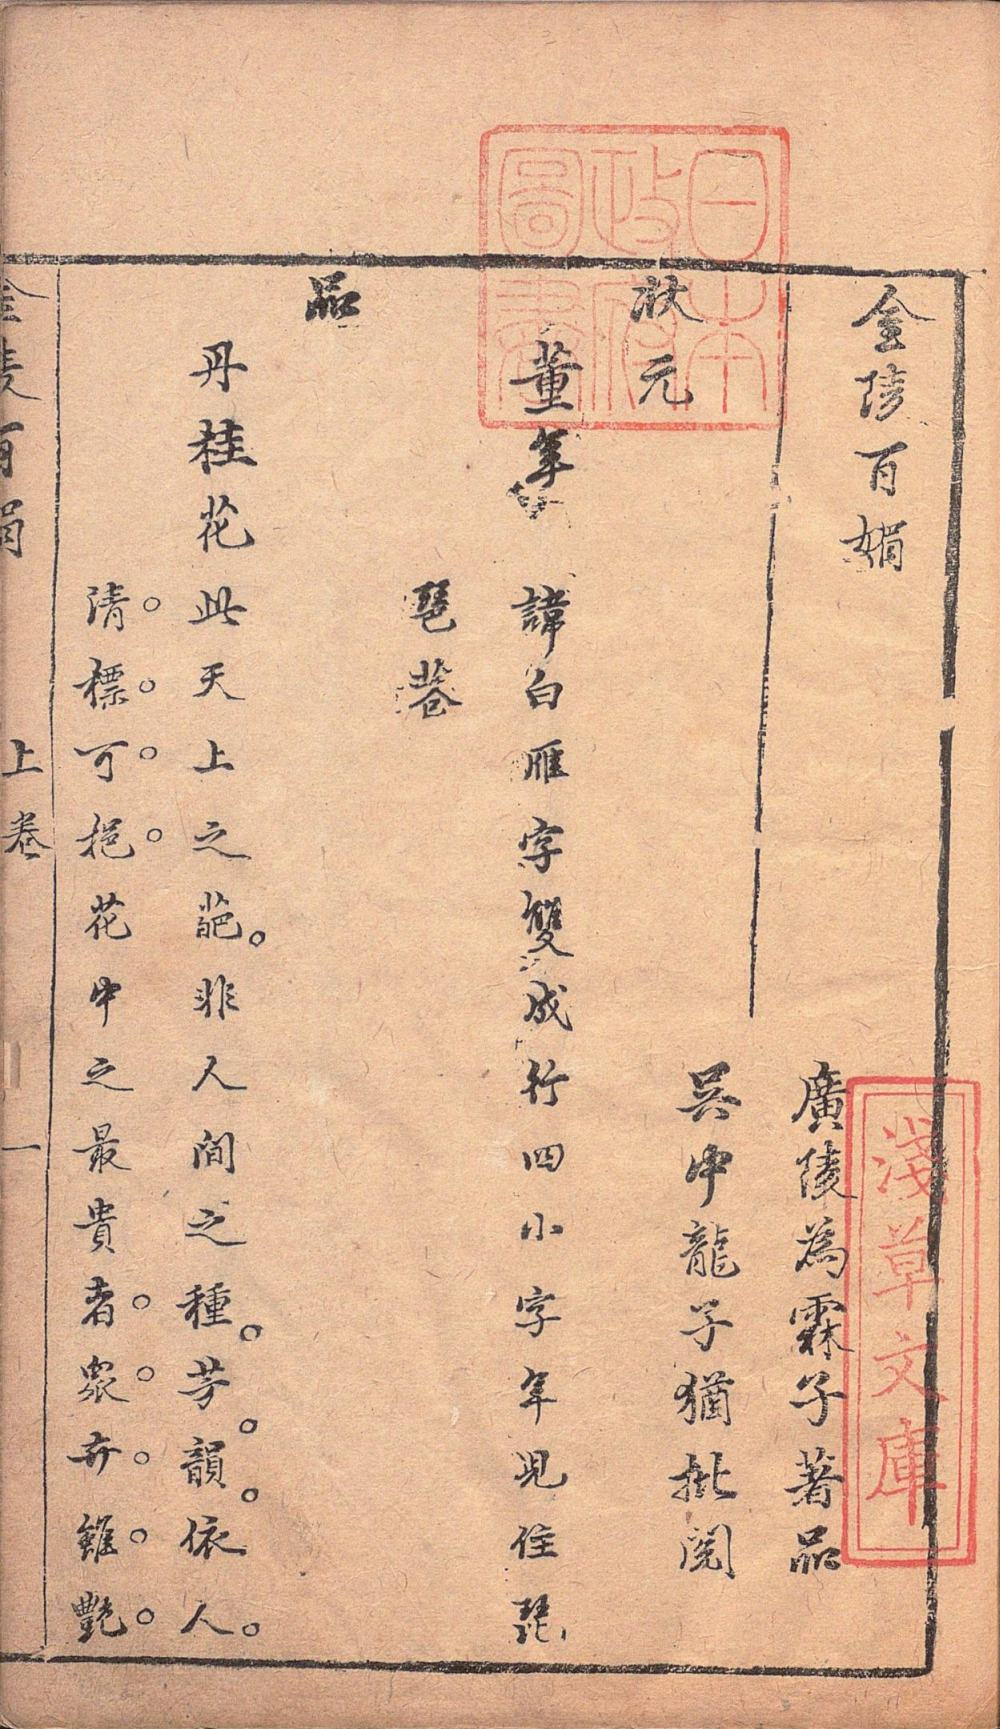 金陵百媚
廣陵為霖子著品
吳中龍子猶批閱
狀元
董年 諱白雁字雙成行四小字年兒住琵
琶巷
品
丹桂花此天上之葩非人間之種芳韻依人
清標可挹花中之最貴者眾卉雖艷
金陵百媚 上卷 一
日本政府圖書
淺草文庫